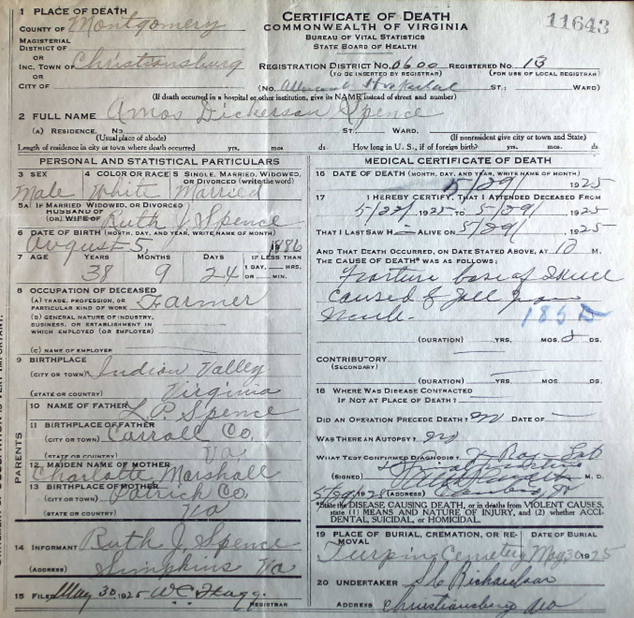 1 PLACE OF DEATH
COUNTY OF Montgomery
MAGISTERIAL DISTRICT OF
OR
INC. TOWN OF Christiansburg
OR
CITY OF
CERTIFICATE OF DEATH
COMMONWEALTH OF VIRGINIA
BUREAU OF VITAL STATISTICS
STATE BOARD OF HEALTH
11643
REGISTRATION DISTRICT NO. 0600 REGISTERED NO. 13
(TO BE INSERTED BY REGISTRAR) (FOR USE OF LOCAL REGISTRAR)
(NO. Hospital ST.; WARD)
(If death occurred in a hospital or other institution, give its NAME instead of street and number)
2 FULL NAME Amos Dickerson Spence
(A) RESIDENCE. No. ST. WARD.
(Usual place of abode) (If nonresident give city or town and State)
Length of residence in city or town where death occurred yrs. mos. ds. How long in U. S., if of foreign birth? yrs. mos. ds.
PERSONAL AND STATISTICAL PARTICULARS
3 SEX Male
4 COLOR OR RACE White
5 SINGLE, MARRIED, WIDOWED, OR DIVORCED (write the word) Married
5A IF MARRIED WIDOWED, OR DIVORCED
HUSBAND OF
(OR) WIFE OF Ruth J Spence
6 DATE OF BIRTH (MONTH, DAY, AND YEAR, WRITE NAME OF MONTH)
August 5, 1886
7 AGE YEARS MONTHS DAYS IF LESS THAN
1 DAY, HRS.
OR MIN.
38 9 24
8 OCCUPATION OF DECEASED
(A) TRADE, PROFESSION, OR
PARTICULAR KIND OF WORK Farmer
(B) GENERAL NATURE OF INDUSTRY,
BUSINESS, OR ESTABLISHMENT IN
WHICH EMPLOYED (OR EMPLOYER)
(C) NAME OF EMPLOYER
9 BIRTHPLACE
(CITY OR TOWN) Indian Valley
(STATE OR COUNTRY) Virginia
PARENTS
10 NAME OF FATHER L. P. Spence
11 BIRTHPLACE OF FATHER
(CITY OR TOWN) Carroll Co.
(STATE OR COUNTRY) Va
12 MAIDEN NAME OF MOTHER
Charlotte Marshall
13 BIRTHPLACE OF MOTHER
(CITY OR TOWN) Patrick Co
(STATE OR COUNTRY) Va
14 INFORMANT Ruth J. Spence
(ADDRESS) Simpkins Va
15 FILED May 30, 1925 W C Flagg
REGISTRAR
MEDICAL CERTIFICATE OF DEATH
16 DATE OF DEATH (MONTH, DAY, AND YEAR, WRITE NAME OF MONTH)
5/29/ 1925
17 I HEREBY CERTIFY, THAT I ATTENDED DECEASED FROM
1925 TO 5/29/ 1925
THAT I LAST SAW H ALIVE ON 5/29/ 1925
AND THAT DEATH OCCURRED, ON DATE STATED ABOVE, AT 10 M.
THE CAUSE OF DEATH* WAS AS FOLLOWS:
Fracture base of Skull
caused by fall from
(DURATION) YRS. MOS. DS.
CONTRIBUTORY
(SECONDARY)
(DURATION) YRS. MOS. DS.
18 WHERE WAS DISEASE CONTRACTED
IF NOT AT PLACE OF DEATH?
DID AN OPERATION PRECEDE DEATH? no DATE OF
WAS THERE AN AUTOPSY? no
WHAT TEST CONFIRMED DIAGNOSIS? X Ray
(SIGNED) M. D.
(ADDRESS)
*State the DISEASE CAUSING DEATH, or in deaths from VIOLENT CAUSES,
state (1) MEANS AND NATURE OF INJURY, and (2) whether ACCI-
DENTAL, SUICIDAL, or HOMICIDAL.
19 PLACE OF BURIAL, CREMATION, OR RE-
MOVAL DATE OF BURIAL
Cemetery May 30 1925
20 UNDERTAKER Richardson
ADDRESS Christiansburg